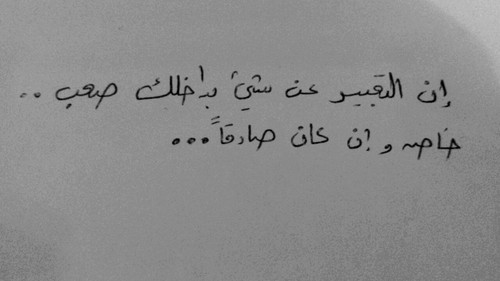 إن التعبير عن شيئ بداخلك صعب ..
خاصه و إن كان صادقاً...